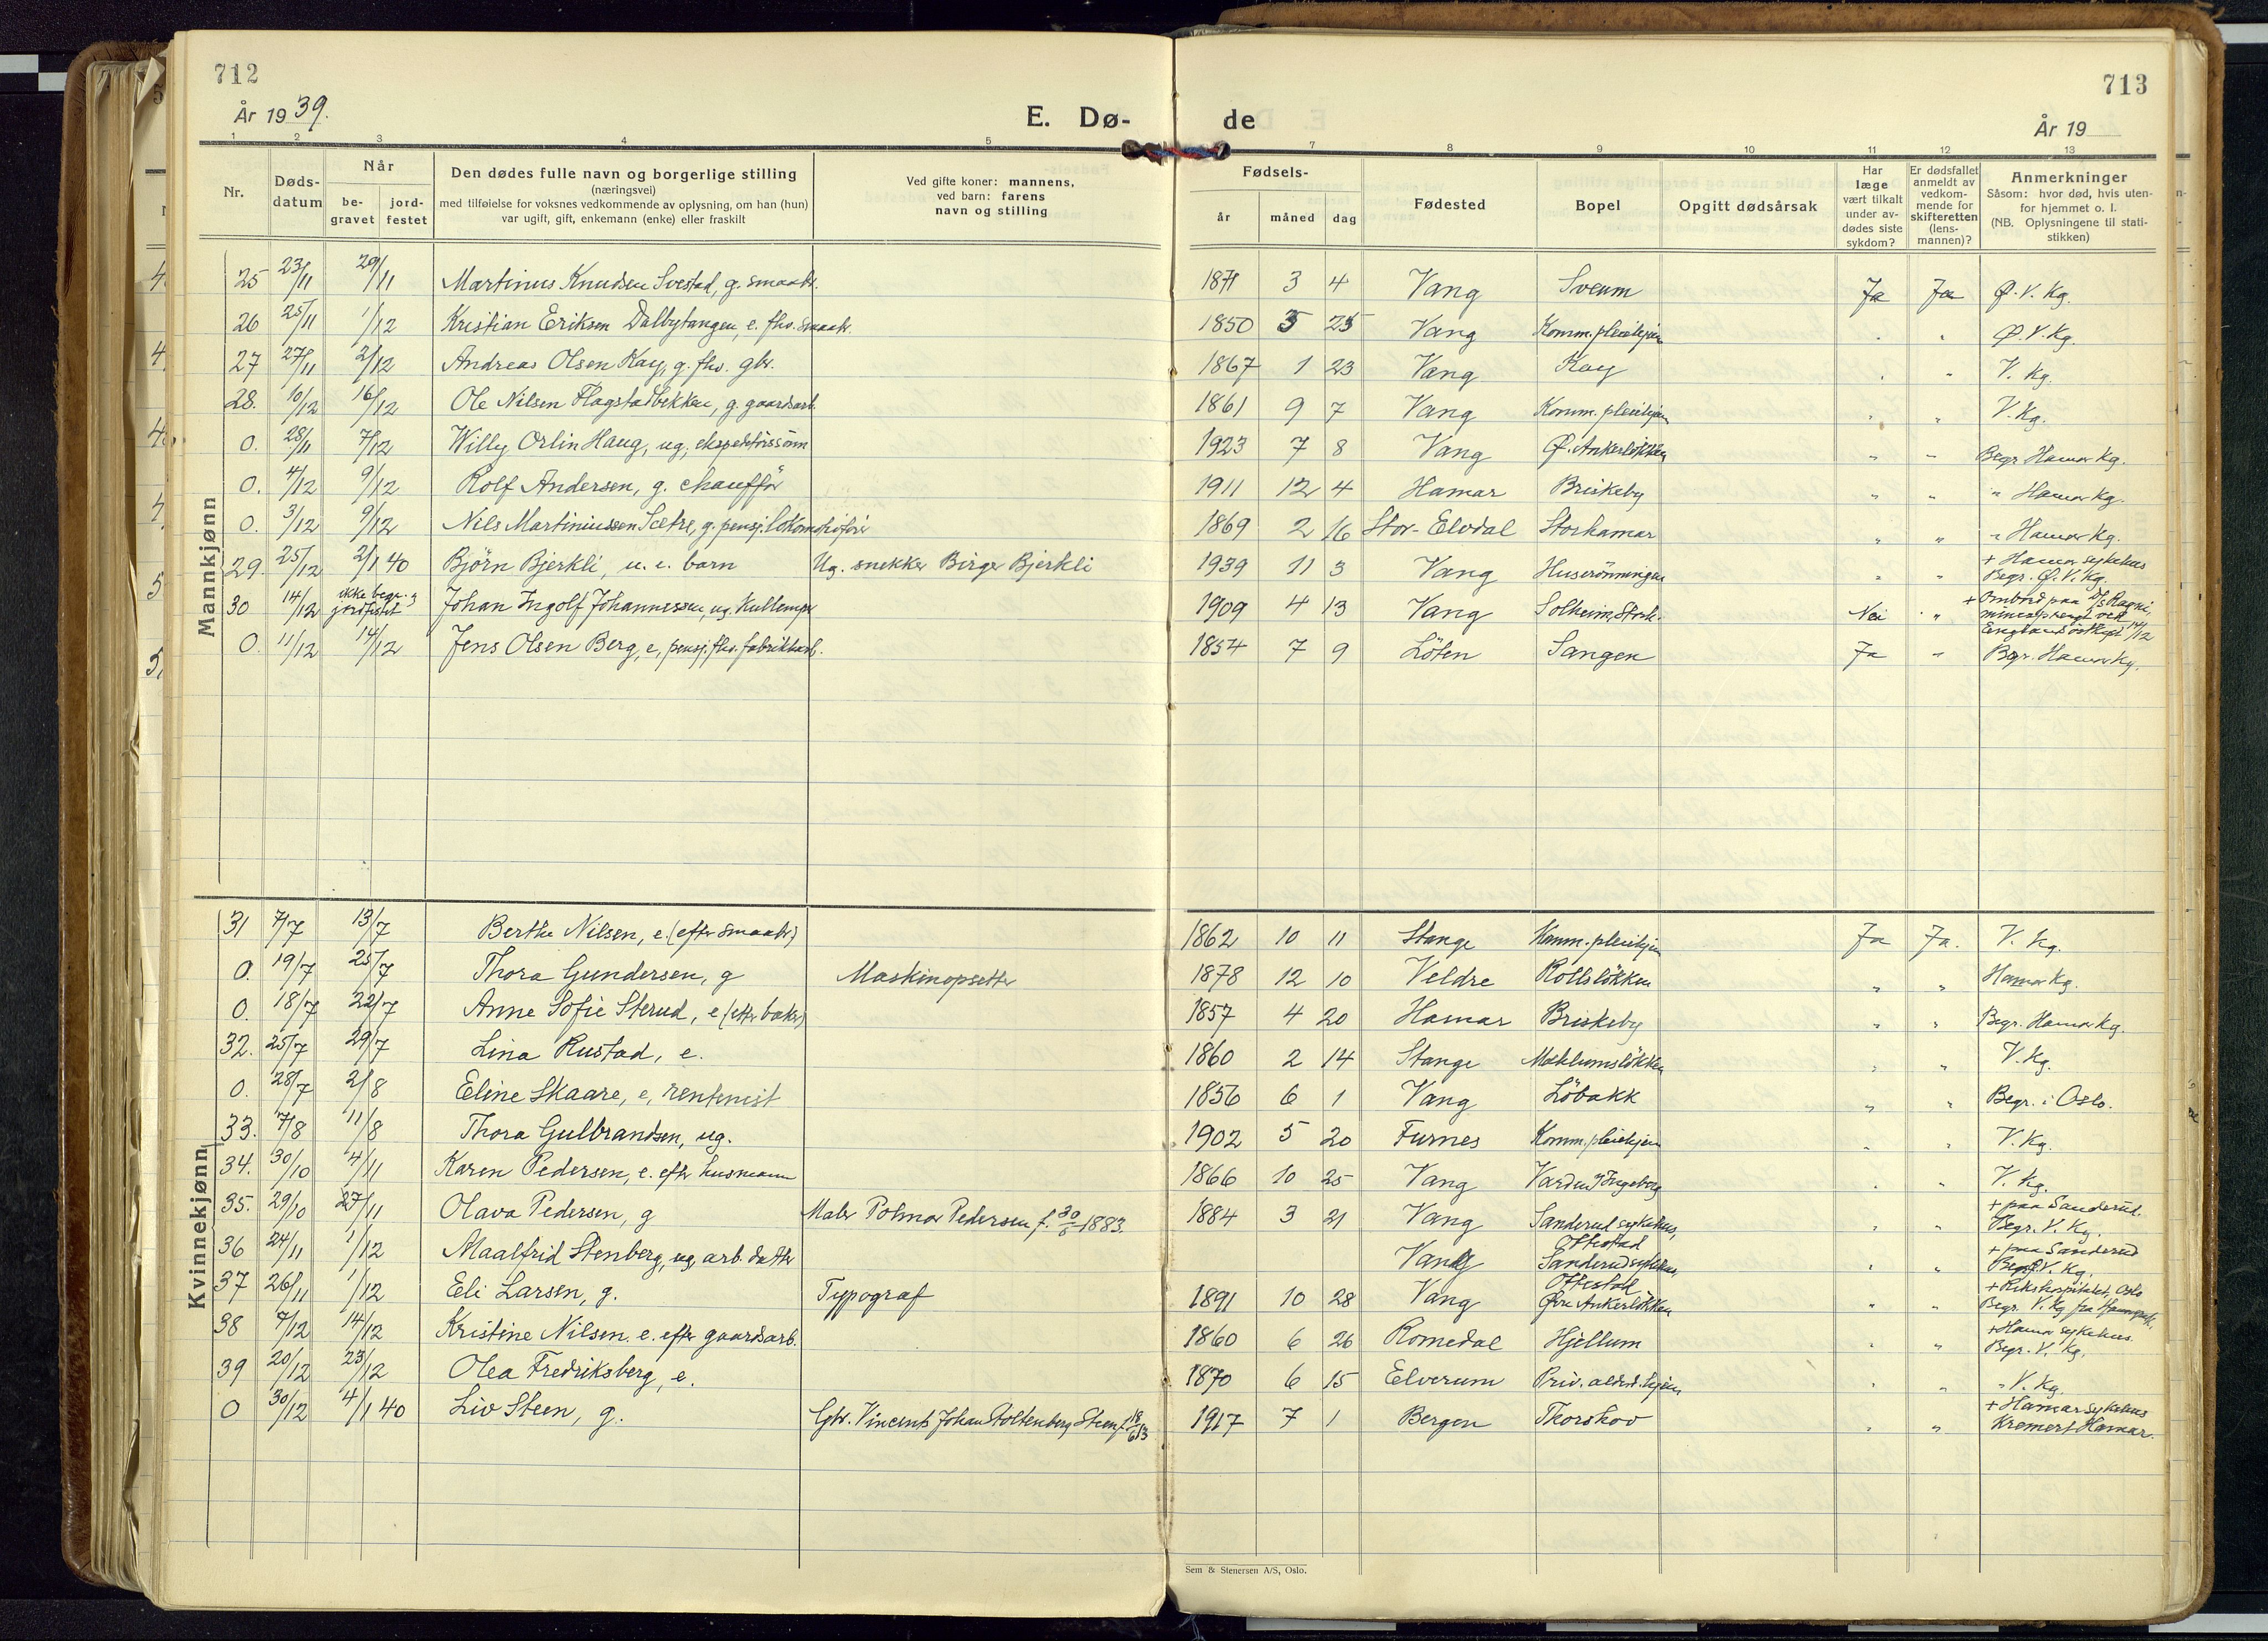 712
År 1939.
E. Dø-
1 2 3 4 5
Nr.
Døds-
datum
Når
be-
gravet
jord-
festet
Den dødes fulle navn og borgerlige stilling
(næringsvei)
med tilføielse for voksnes vedkommende av oplysning, om han (hun)
var ugift, gift, enkemann (enke) eller fraskilt
Ved gifte koner: mannens,
ved barn: farens
navn og stilling
Mannkjønn
25 23/11 29/11 Martinus Knudsen Svestad, g. smaabr.
26 25/11 1/12 Kristian Eriksen Dalbytangen, e. fhv. smaabr.
27 27/11 2/12 Andreas Olsen Kay, g. fhv. gbr.
28. 10/12 16/12 Ole Nilsen Flagstadbekken, g. gaardsarb.
0. 28/11 7/12 Willy Orlin Haug, ug, ekspeditörssönn
0. 4/12 9/12 Rolf Andersen, g. chaufför
0. 3/12 9/12 Nils Martiniussen Sætre, g. pensj. lokomotivförer
29. 25/12 2/1 40 Björn Bjerkli, u. e. barn Ug. snekker Birger Bjerkli
30 14/12 ikke begr. & jordfestet Johan Ingolf Johannessen, ug. Kullemper
0. 11/12 14/12 Jens Olsen Berg, e, pensj. fhv. fabrikkarb.
Kvinnekjønn
31 7/7 13/7 Berthe Nilsen, e. (efter smaabr)
0. 19/7 25/7 Thora Gundersen, g Maskinopsetter
0. 18/7 22/7 Anne Sofie Sterud, e (efter baker)
32. 25/7 29/7 Lina Rustad, e.
0. 28/7 2/8 Eline Skaare, e, rentenist
33. 7/8 11/8 Thora Gulbrandsen, ug.
34. 30/10 4/11 Karen Pedersen, e. efter husmann
35. 29/10 27/11 Olava Pedersen, g Maler Polmar Pedersen f. 30/6 1883.
36 24/11 1/12 Maalfrid Stenberg, ug, arb. datter
37 26/11 1/12 Eli Larsen, g. Typograf
38 7/12 14/12 Kristine Nilsen. e. efter gaardsarb.
39 20/12 23/12 Olea Fredriksberg, e.
0 30/12 4/1 40 Liv Steen, g. Gbr. Vincents Johan Stoltenberg Steen f. 18/6 13
713
de
År 19
7 8 9 10 11 12 13
Fødsels-
år måned dag
Fødested
Bopel
Opgitt dødsårsak
Har
læge
vært tilkalt
under av-
dødes siste
sykdom?
Er dødsfallet
anmeldt av
vedkom-
mende for
skifteretten
(lens-
mannen)?
Anmerkninger
Såsom: hvor død, hvis uten-
for hjemmet o. l.
(NB. Oplysningene til stati-
stikken)
1871 3 4 Vang Sveum Ja Ja Ø. V. Kg.
1850 5 25 Vang Komm. pleiehjem . " Ø. V. Kg.
1867 1 23 Vang Kay . " V. Kg.
1861 9 7 Vang Komm. pleiehjem " " V. Kg.
1923 7 8 Vang Ø. Ankerløkken " " Begr. Hamar Kg.
1911 12 4 Hamar Briskeby " " " Hamar Kg.
1869 2 16 Stor-Elvdal Storhamar " " " Hamar Kg.
1939 11 3 Vang Huserönningen " " + Hamar sykehus
Begr. Ø. V. Kg.
1909 4 13 Vang Solheim, Storh. Nei " + Ombord paa D/s Ragni,
minesprengt ved
Englands östkyst 14/12
1854 7 9 Löten Sangen Ja " Begr. Hamar Kg.
1862 10 11 Stange Komm. pleiehjem Ja Ja. V. Kg.
1878 12 10 Veldre Rollsløkken " " Hamar Kg.
1857 4 20 Hamar Briskeby " " Begr. Hamar Kg.
1860 2 14 Stange Mæhlumsløkken " " V. Kg.
1856 6 1 Vang Löbakk " " Begr. i Oslo.
1902 5 20 Furnes Komm. pleiehjem " " V. Kg.
1866 10 25 Vang Varden, Ingeberg . " V. Kg.
1884 3 21 Vang Sanderud sykehus,
Ottestad " " + paa Sanderud.
Begr. V. Kg.
Vang Sanderud sykehus,
Ottestad " " + paa Sanderud
Begr. V. Kg.
1891 10 28 Vang Øvre Ankerløkken " " + Rikshospitalet, Oslo
Begr. V. Kg
1860 6 26 Romedal Hjellum . " + Hamar sykehus.
Begr. V. Kg.
1870 6 15 Elverum Priv. aldershjem . " " V. Kg.
1917 7 1 Bergen Thorshov . " + Hamar sykehus
Kremert Hamar.
Sem & Stenersen A/S, Oslo.